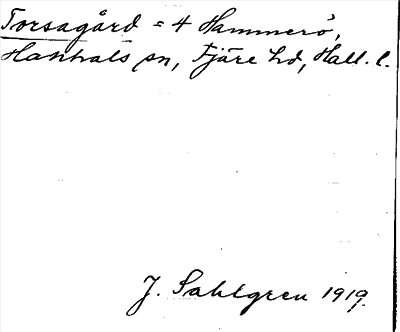 Torsagård = 4 Hammerö,
Hanhals sn, Fjäre hd, Hall. l.
J. Sahlgren 1919.